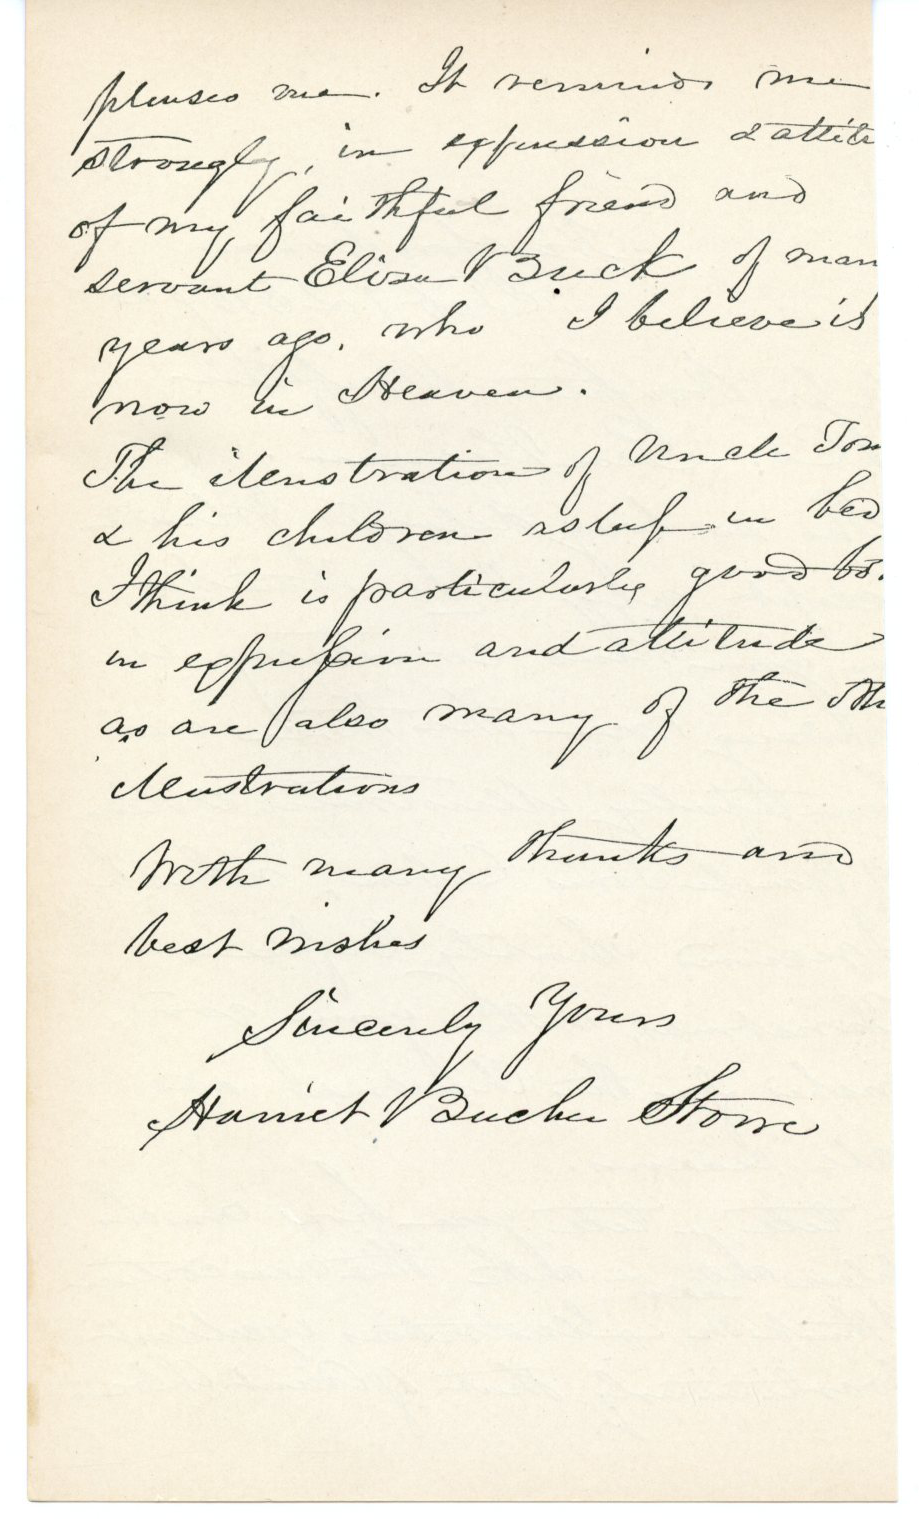 pleases me. It reminds me
strongly, in expression & attit
of my faithful friend and
servant Eliza Buck of man
years ago, who I believe is
now in Heaven.
The illustration of Uncle Tom
& his children asleep in bed
I think is particularly good
in expression and attitude
as are also many of the oth
illustrations
With many thanks and
best wishes
Sincerely Yours
Harriet Beecher Stowe